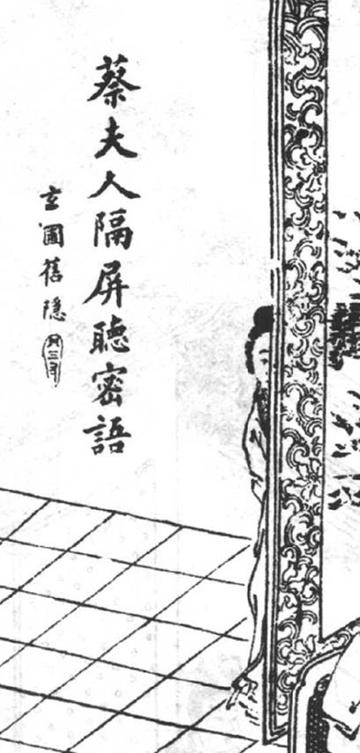 蔡夫人隔屏聽密語
玄圃舊隱